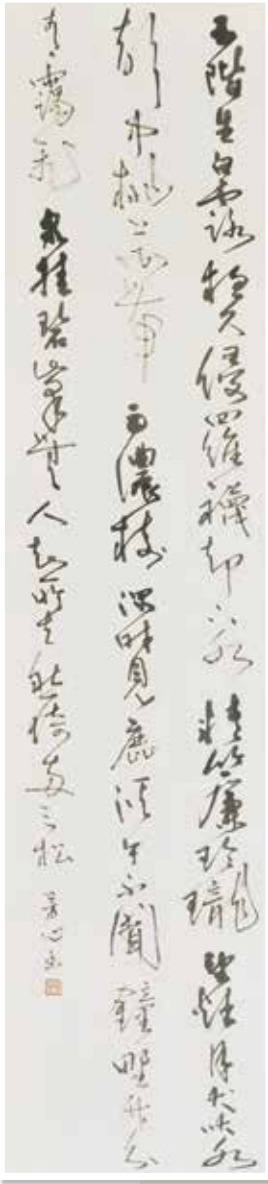 玉階生白露夜久侵羅襪卻下水精簾玲瓏望秋月犬吠水
聲中桃花帶雨濃樹深時見鹿溪午不聞鐘野竹分
青靄飛泉挂碧峰無人知所去愁倚兩三松